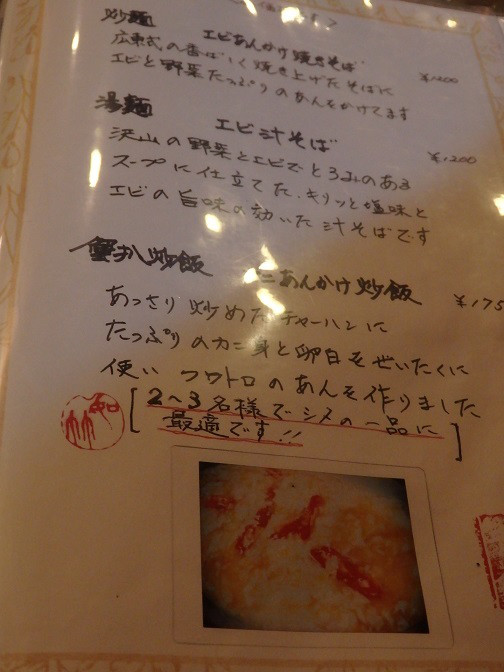 炒麺
エビあんかけ焼きそば ¥1200
広東式の香ばしく焼き上げたそばに
エビと野菜たっぷりのあんをかけてます
湯麺
エビ汁そば ¥1,200
沢山の野菜とエビでとろみのある
スープに仕立てた、キリッと塩味と
エビの旨味の効いた汁そばです
蟹扒炒飯 カニあんかけ炒飯 ¥175
あっさり炒めたチャーハンに
たっぷりのカニ身と卵白をぜいたくに
使い フワトロのあんを作りました
[2〜3名様でシメの一品に
最適です!!]